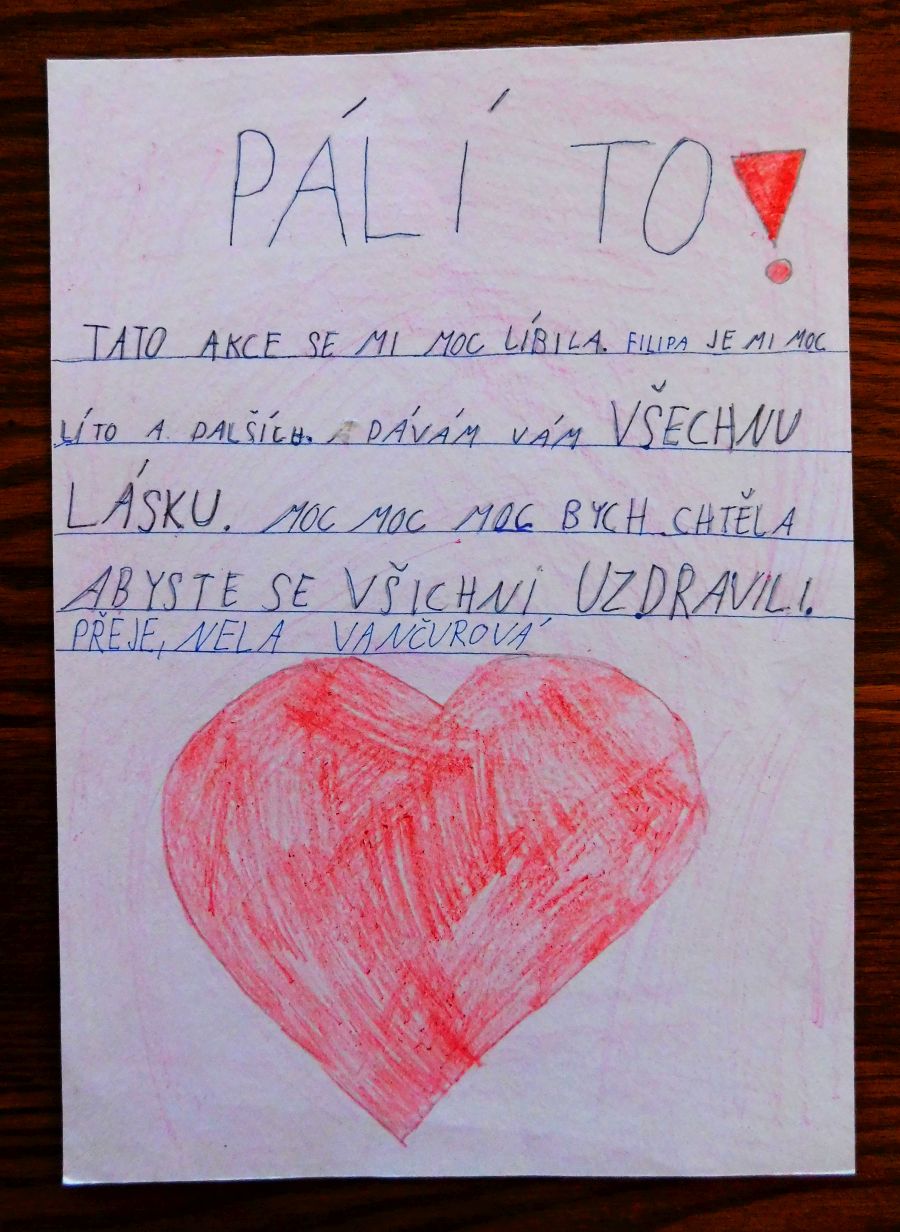 PÁLÍ TO!
TATO AKCE SE MI MOC LÍBILA. FILIPA JE MI MOC
LÍTO A DALŠÍCH. A DÁVÁM VÁM VŠECHNU
LÁSKU. MOC MOC MOC BYCH CHTĚLA
ABYSTE SE VŠICHNI UZDRAVILI.
PŘEJE, NELA VANČUROVÁ